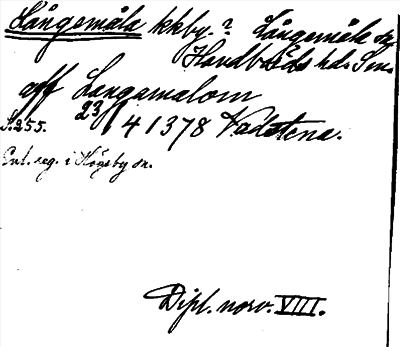 Långsmåla kkby.? Långsmåla
Handbörds hd. Sm.
aff Langamalom
S. 255. 23/4 1378 Vadstena.
Enl. reg. i Högsby sn.
Dipl. norv. VIII.